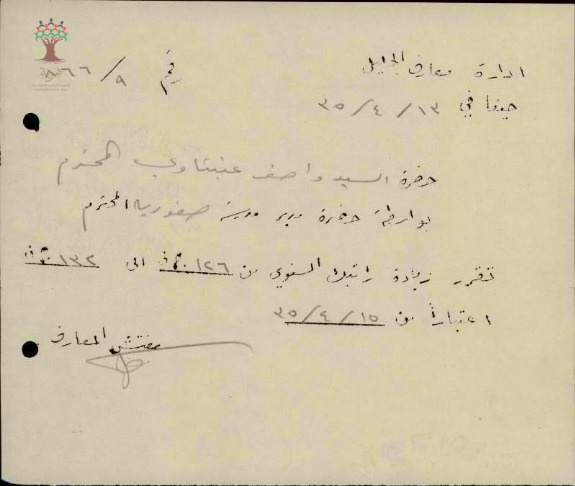 ادارة معارف الجليل
رقم ٩/٨٦٦
حيفا في ١٣/٤/٣٥
حضرة السيد واصف عنبتاوي المحترم
بواسطة حضرة مدير مدرسة صفورية المحترم
تقرر زيادة راتبك السنوي من ١٢٦ الى ١٣٢
اعتباراً من ١٥/٤/٣٥
مفتش المعارف